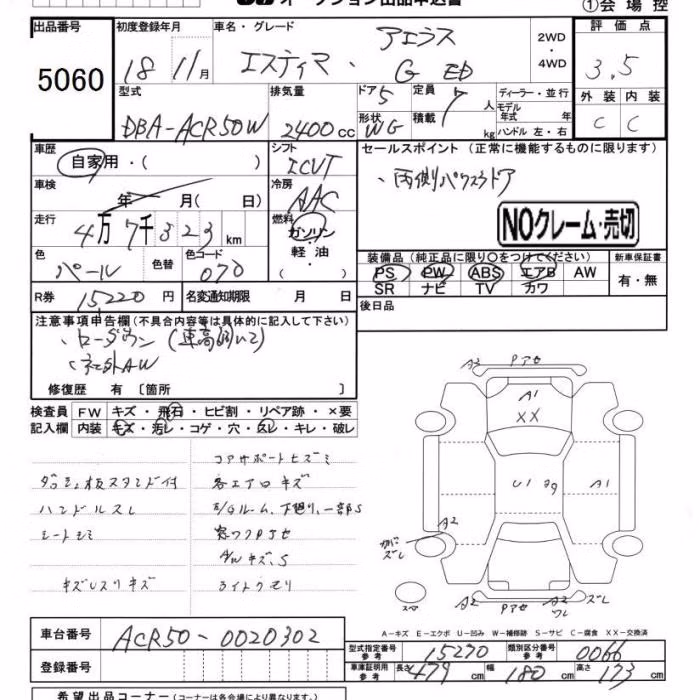 オークション出品申込書
①会場控
出品番号 初度登録年月 車名・グレード 評価点
5060 18 11月 エスティマ、アエラス G ED 2WD・4WD 3.5
型式 排気量 ドア 5 定員 7人 ディーラー・並行 外装 内装
DBA-ACR50W 2400cc 形状 WG 積載 kg モデル年式 年 ハンドル左・右 C C
車歴 シフト セールスポイント (正常に機能するものに限ります)
自家用・( ) ICVT ・両側パワスラドア
車検 冷房
年 月( 日) AAC
走行 燃料 NOクレーム・売切
4万7千323km ガソリン・軽油
色 色替 色コード 装備品(純正品に限り○をつけてください) 新車保証書
パール 070 PS PW ABS エアB AW 有・無
SR ナビ TV カワ
R券 15220円 名変通知期限 月 日 後日品
注意事項申告欄(不具合内容等は具体的に記入して下さい)
・ローダウン(車高調いて)
・社外AW
修復歴 有 [箇所 ]
検査員 FW キズ・飛石・ヒビ割・リペア跡・×要
記入欄 内装 キズ・汚レ・コゲ・穴・スレ・キレ・破レ
コアサポートヒズミ
ダッシュ板スタンド付 各エアロキズ
ハンドルスレ E/Gルーム、下廻り、一部S
シートシミ
AWキズ、S
キズ スリキズ ライトクモリ
A3 Pアセ
A1
XX
U1
A1
A2
スレ
スペア A2 Pアセ A2 ワレ ズレ
A-キズ E-エクボ U-凹み W-補修跡 S-サビ C-腐食 XX-交換済
車台番号 ACR50-0020302
型式指定番号 参考 15270 類別区分番号 参考 0066
登録番号 車庫証明用 参考 長さ 479cm 幅 180cm 高さ 173cm
希望出品コーナー(コーナーは各会場により異なります。)